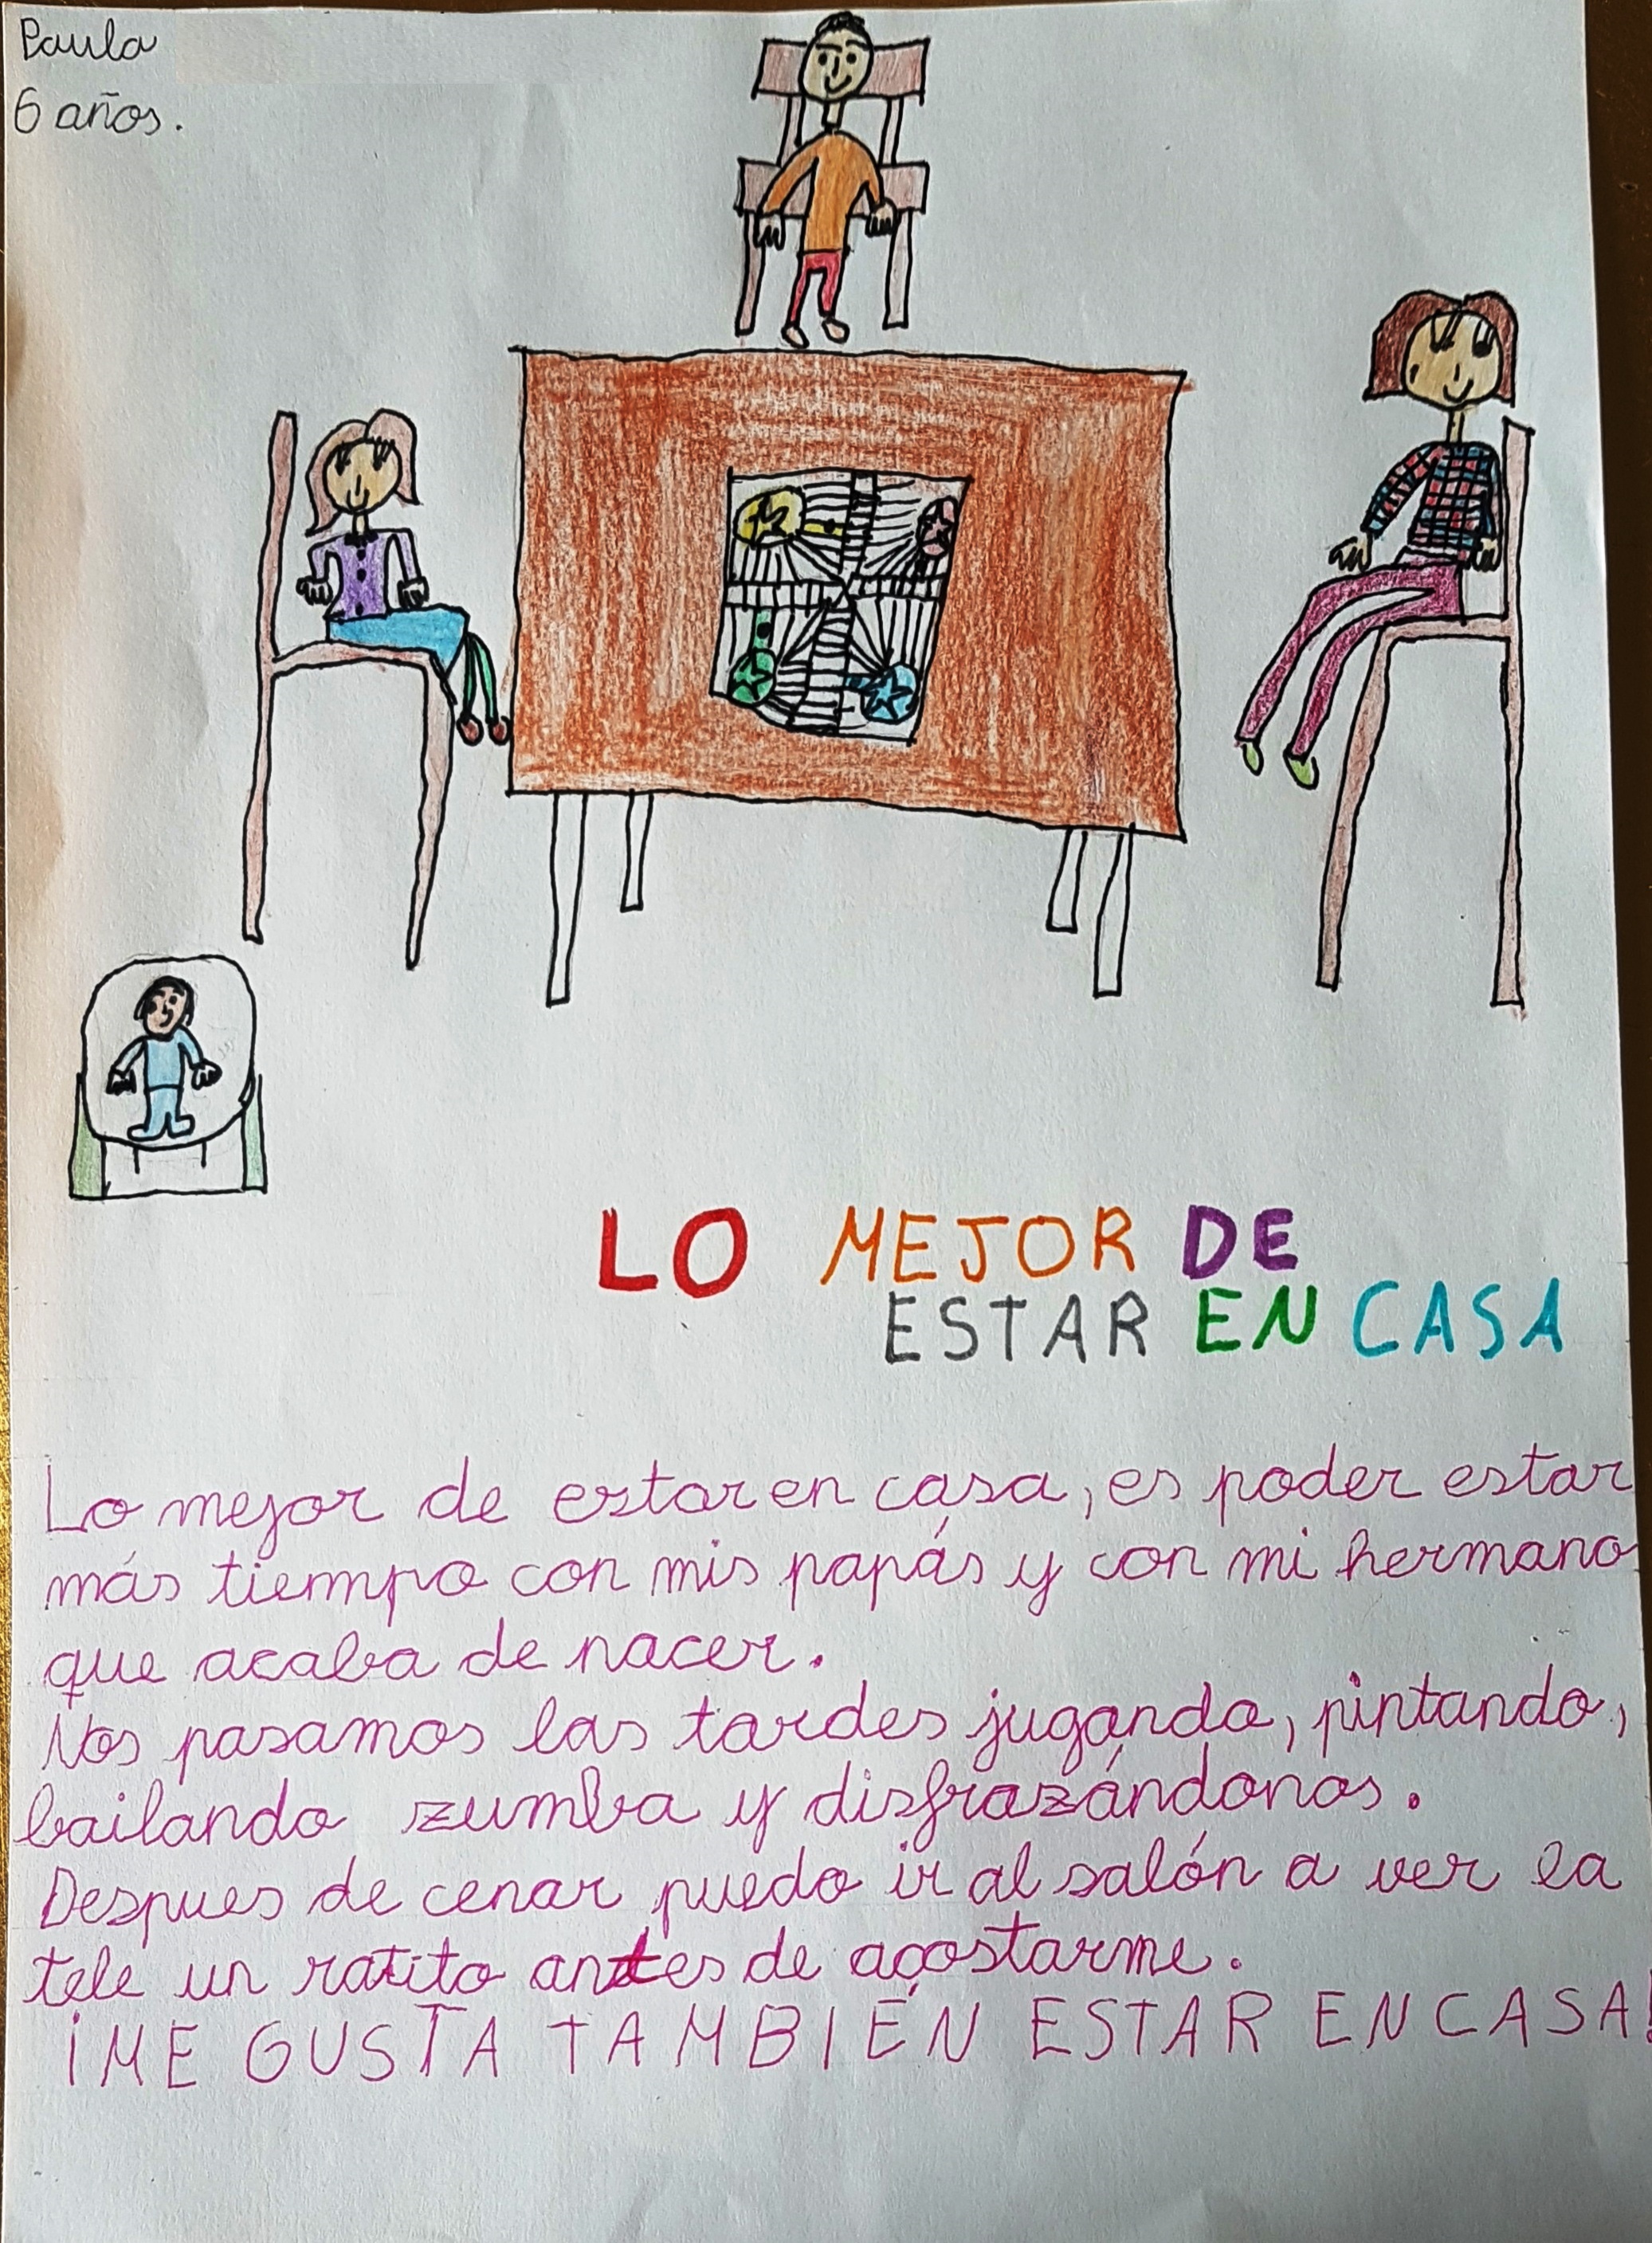 Paula
6 años.
LO MEJOR DE
ESTAR EN CASA
Lo mejor de estar en casa, es poder estar
más tiempo con mis papás y con mi hermano
que acaba de nacer.
Nos pasamos las tardes jugando, pintando,
bailando zumba y disfrazándonos.
Despues de cenar puedo ir al salón a ver la
tele un ratito antes de acostarme.
¡ME GUSTA TAMBIÉN ESTAR EN CASA!